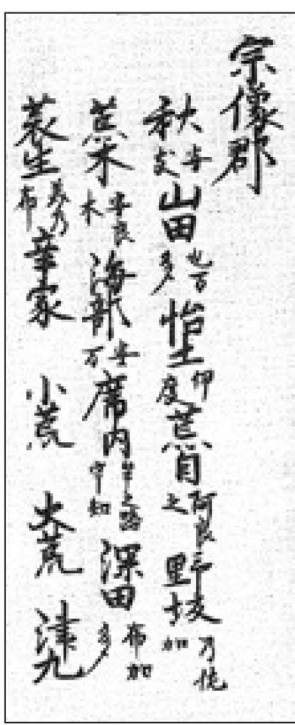 宗像郡
秋 安支 山田 也万多 怡土 度 荒自 阿良之 野坂 乃 加
荒木 安良木 海部 安万 席内 之路 知 深田 布加多
蓑生 美乃布 辛家 小荒 大荒 津九